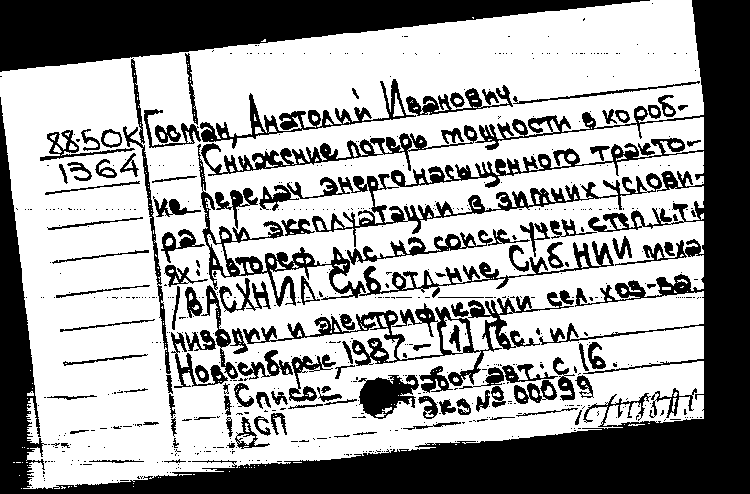 88-50К
1364
Госман, Анатолий Иванович.
Снижение потерь мощности в короб-
ке передач энергонасыщенного тракто-
ра при эксплуатации в зимних услови-
ях: Автореф. дис. на соиск. учен. степ. к.т.н
/ВАСХНИЛ. Сиб. отд-ние, Сиб. НИИ меха-
низации и электрификации сел. хоз-ва.-
Новосибирск, 1987.-[1] 16с.: ил.
Список работ авт.: с. 16.
ДСП Экз № 00099